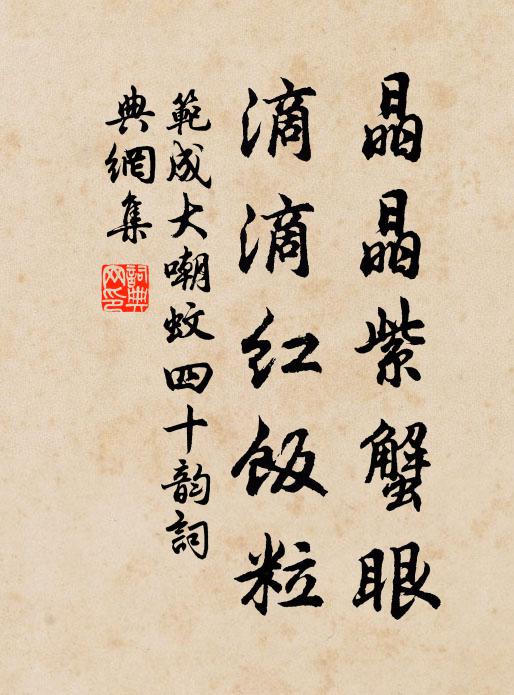 晶晶紫蟹眼
滴滴红飯粒
範成大嘲蚊四十韵詞
典網集
詞典网印